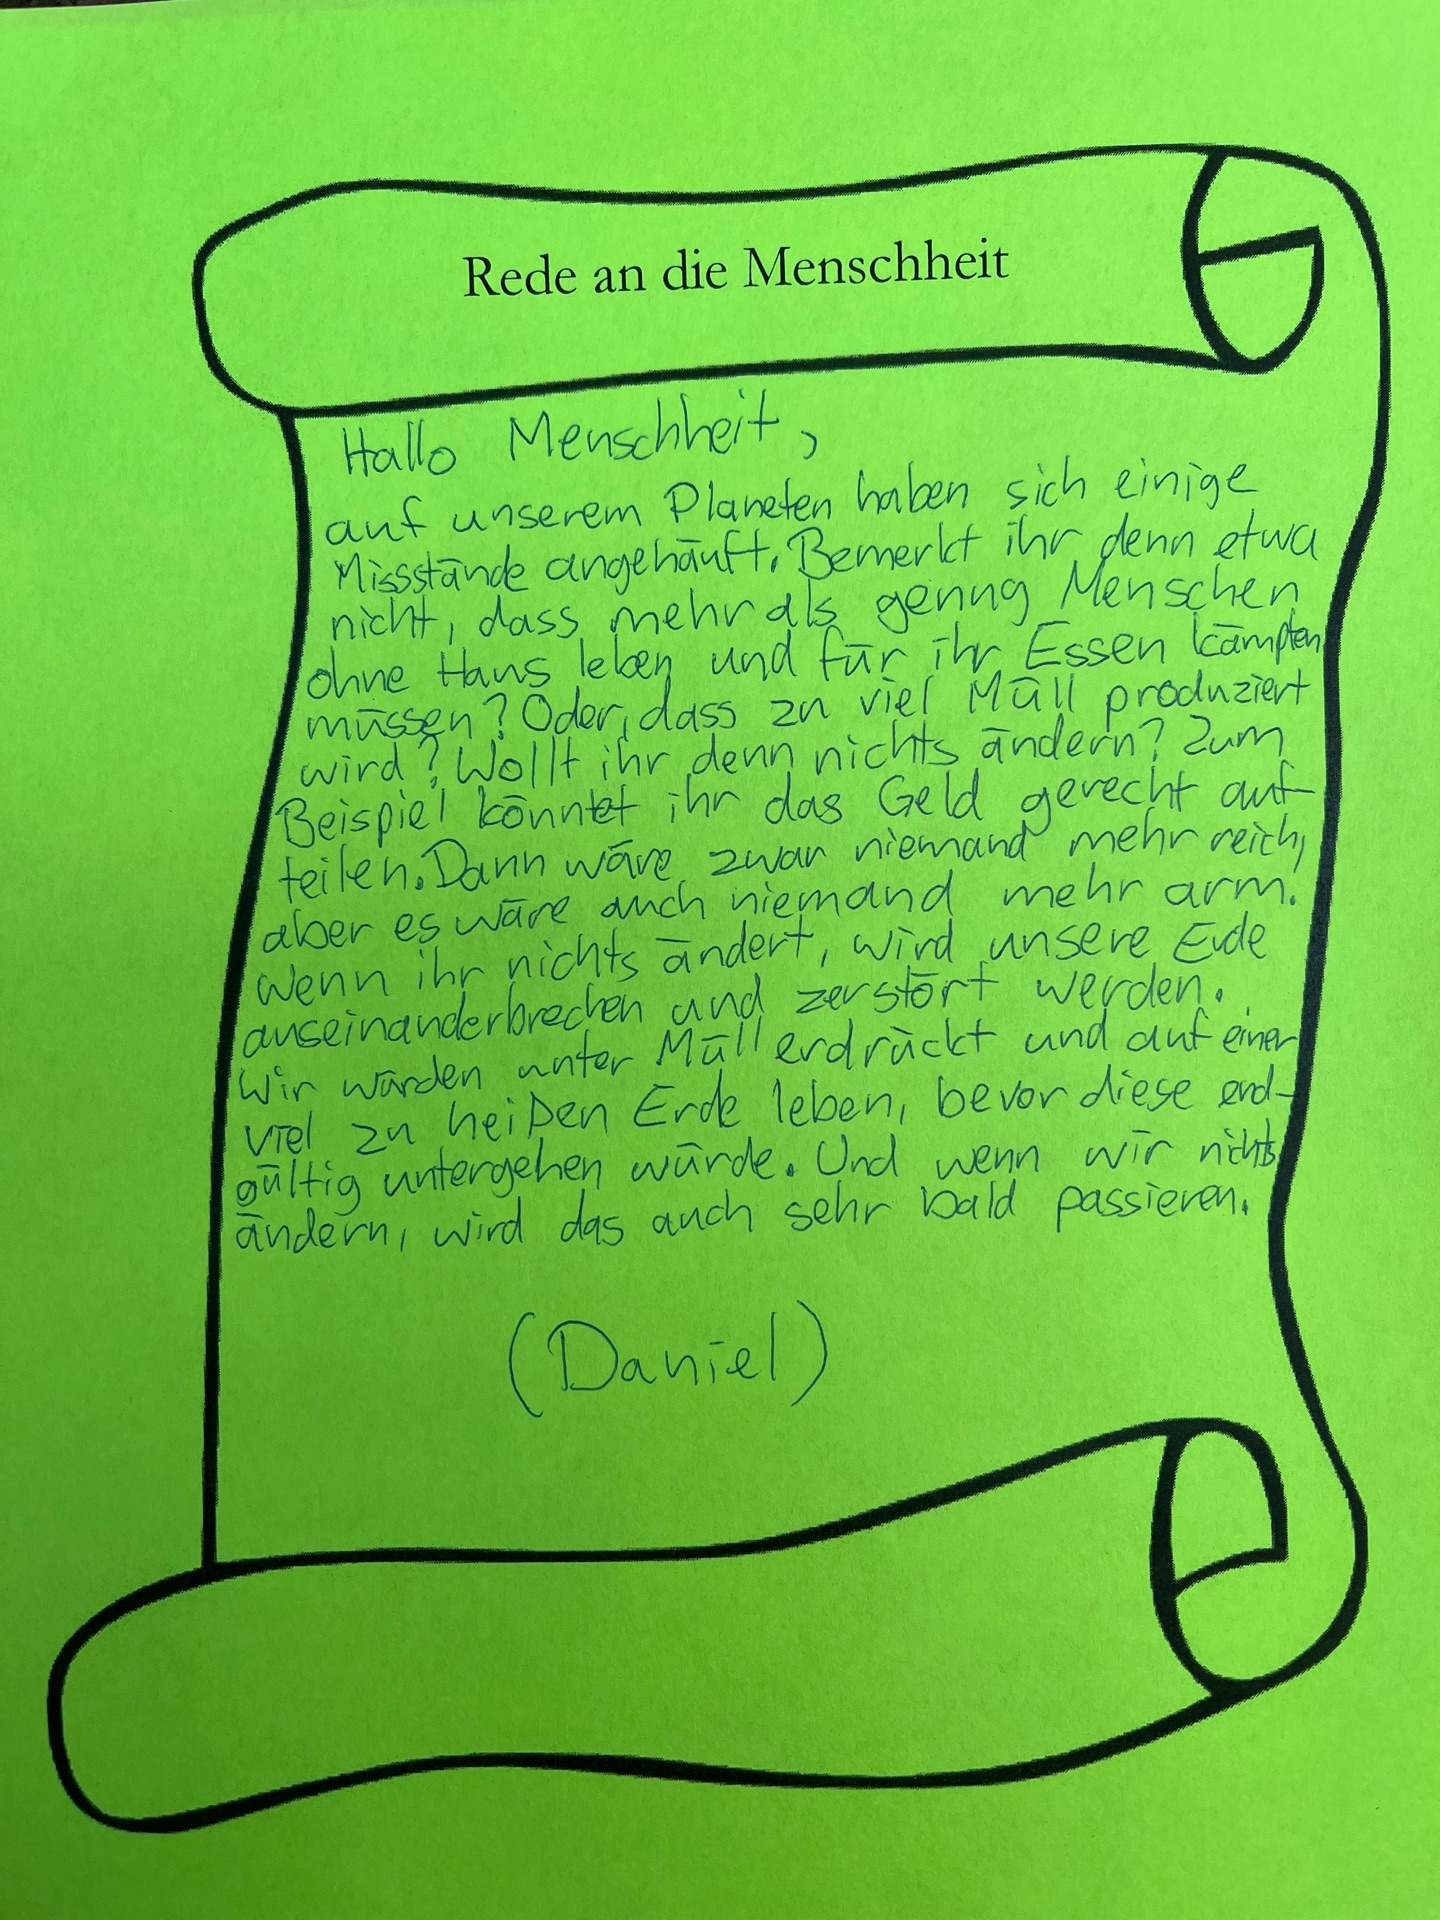 Rede an die Menschheit
Hallo Menschheit,
auf unserem Planeten haben sich einige
Missstände angehäuft. Bemerkt ihr denn etwa
nicht, dass mehr als genug Menschen
ohne Haus leben und für ihr Essen kämpfen
müssen? Oder, dass zu viel Müll produziert
wird? Wollt ihr denn nichts ändern? Zum
Beispiel könntet ihr das Geld gerecht auf-
teilen. Dann wäre zwar niemand mehr reich,
aber es wäre auch niemand mehr arm.
Wenn ihr nichts ändert, wird unsere Erde
auseinanderbrechen und zerstört werden.
Wir würden unter Müll erdrückt und auf einer
viel zu heißen Erde leben, bevor diese end-
gültig untergehen würde. Und wenn wir nichts
ändern, wird das auch sehr bald passieren.
(Daniel)